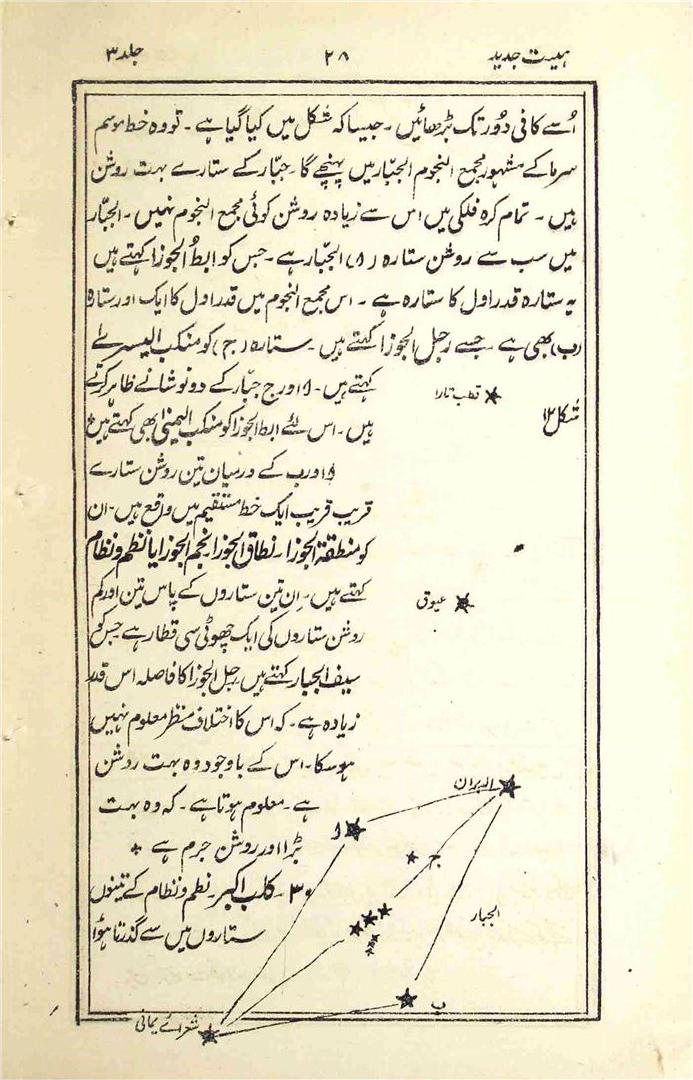 ہیت جدید ۲۸ جلد ۳
اُسے کافی دُور تک بڑھائیں ۔ جیسا کہ شکل میں کیا گیا ہے ۔ تو وہ خط موسم
سرما کے مشہور مجمع النجوم الجبّار میں پہنچے گا ۔ جبّار کے ستارے بہت روشن
ہیں ۔ تمام کرہ فلکی میں اس سے زیادہ روشن کوئی مجمع النجوم نہیں ۔ الجبّار
میں سب سے روشن ستارہ (ا) الجبّار ہے ۔ جس کو ابطُ الجوزا کہتے ہیں
یہ ستارہ قدر اول کا ستارہ ہے ۔ اس مجمع النجوم میں قدر اول کا ایک اور ستارہ
(ب) بھی ہے ۔ جسے رجل الجوزا کہتے ہیں ۔ ستارہ (ج) کو منکب الیسرےٰ
کہتے ہیں ۔ ا اور ج جبّار کے دونو شانے ظاہر کرتے
ہیں ۔ اس لئے ابط الجوزا کو منکب الیمنیٰ بھی کہتے ہیں
ا اور ب کے درمیان تین روشن ستارے
قریب قریب ایک خط مستقیم میں واقع ہیں ۔ ان
کو منطقۃ الجوزا ۔ نطاق الجوزا انجم الجوزا یا نظم و نظام
کہتے ہیں ۔ اِن تین ستاروں کے پاس تین اور کم
روشن ستاروں کی ایک چھوٹی سی قطار ہے جس کو
سیف الجبار کہتے ہیں رجل الجوزا کا فاصلہ اس قدر
زیادہ ہے ۔ کہ اس کا اختلاف منظر معلوم نہیں
ہو سکا ۔ اس کے باوجود وہ بہت روشن
ہے ۔ معلوم ہوتا ہے ۔ کہ وہ بہت
بڑا اور روشن جرم ہے ٭
۳۰ ۔ کلب اکبر ۔ نظم و نظام کے تینوں
ستاروں میں سے گذرتا ہؤا
شکل ۱۲
قطب تارا
عیوق
الدبران
ا
ج
الجبار
ب
شعرائے یمانی